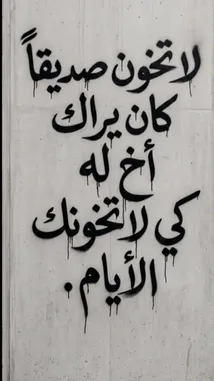 لا تخون صديقاً
كان يراك
أخ له
كي لا تخونك
الأيام.